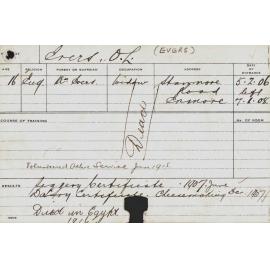 Evers, O. L. (EVERS)
AGE RELIGION PARENT OR GUARDIAN OCCUPATION ADDRESS DATE OF ENTRANCE
16 Eng. Mrs Evers. Widow Stanmore 5.2.06
Road left
Enmore 7.1.08
Dead
COURSE OF TRAINING No. OF ROOM
Volunteered Active Service Jan 1915
RESULTS Certificate 1907 June
Dairy Certificate Cheesemaking Dec 1907
NOTE Died in Egypt
1916